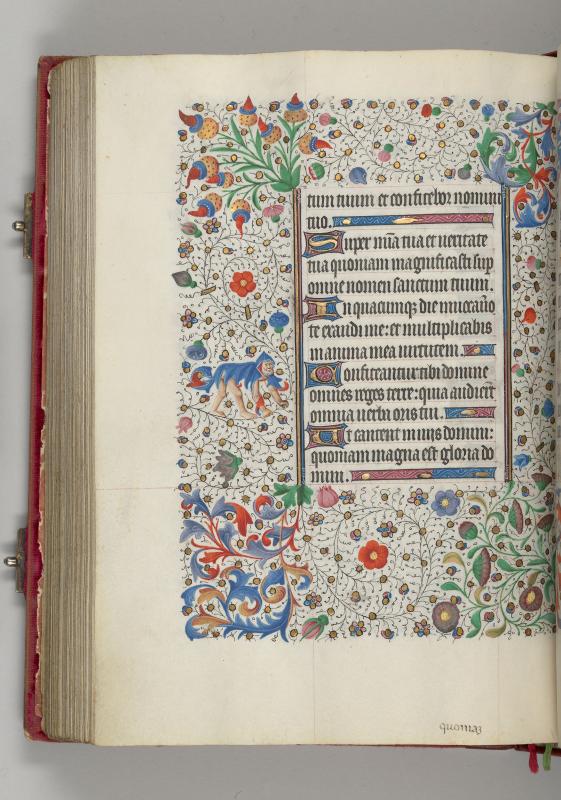 tuum tuum et confitebor nomini
tuo.
Super mi̅a tua et ueritate
tua quoniam magnificasti sup
omne nomen sanctum tuum.
In quacumqꝫ die inuocauero
te exaudi me: et multiplicabis
in anima mea uirtutem.
Confiteantur tibi domine
omnes reges terre: quia audierūt
omnia uerba oris tui.
Et cantent in uiis domini:
quoniam magna est gloria do
mini.
quoniaꝫ